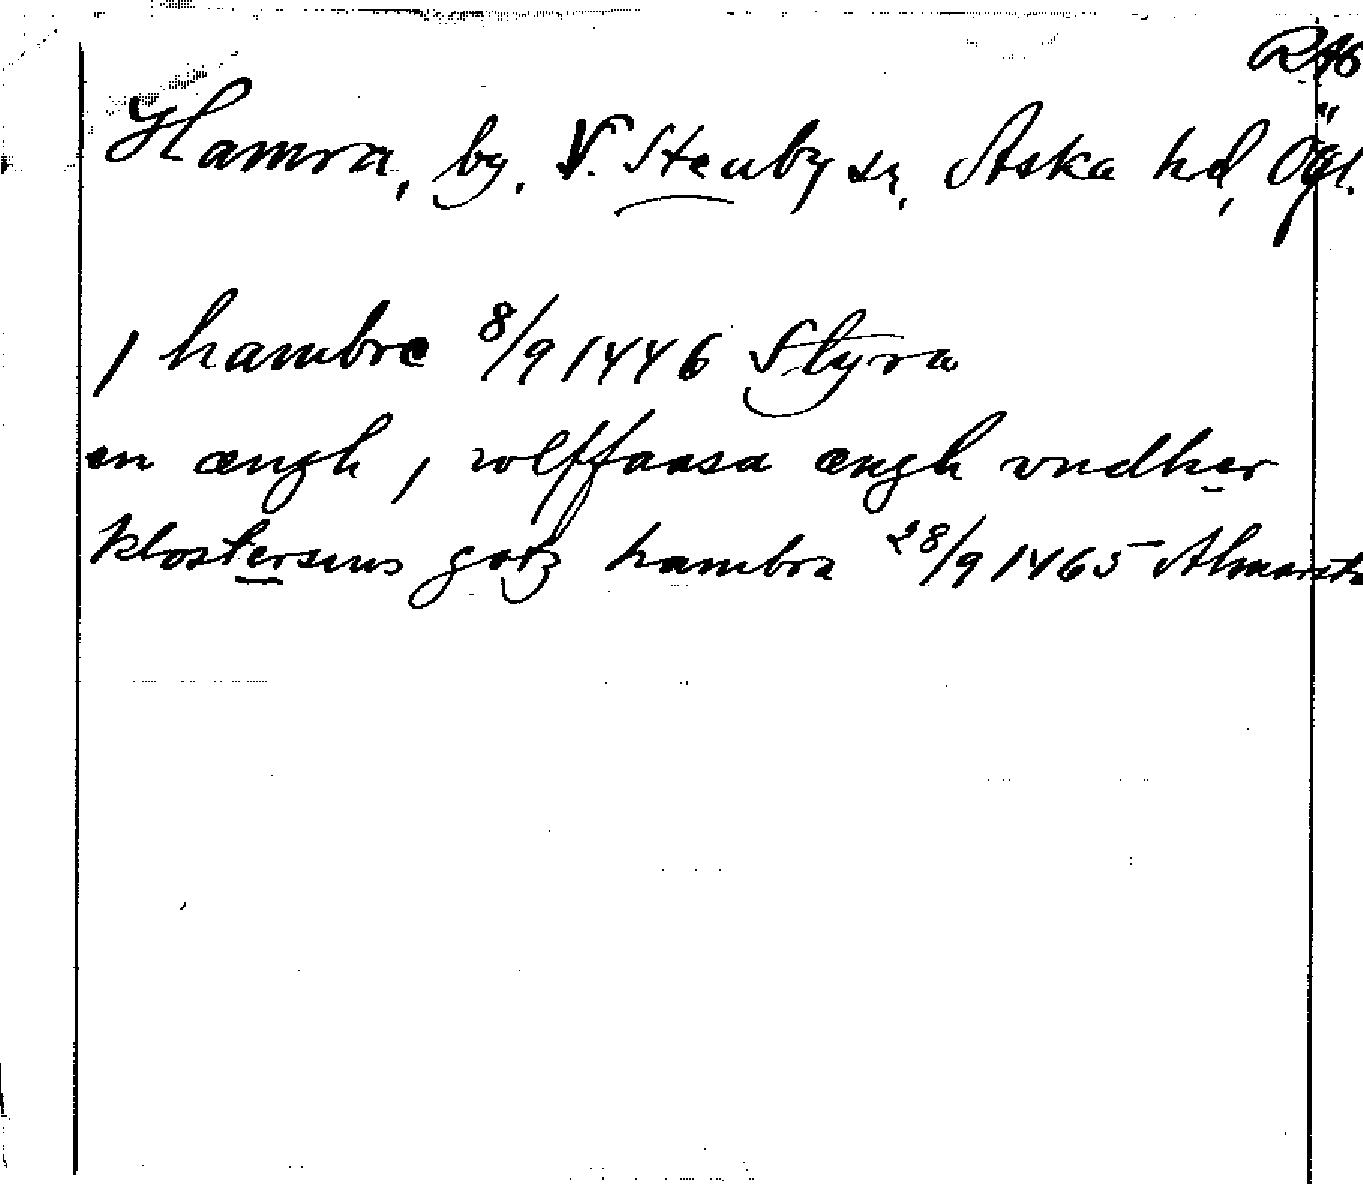 RAÖ
Hamra, by. V. Stenby sn, Aska hd, Ögl.
j hambre 8/9 1446 Styra
en ængh j rolffaasa ængh vndher
klostersens gotz hambra 28/9 1465 Almarsta